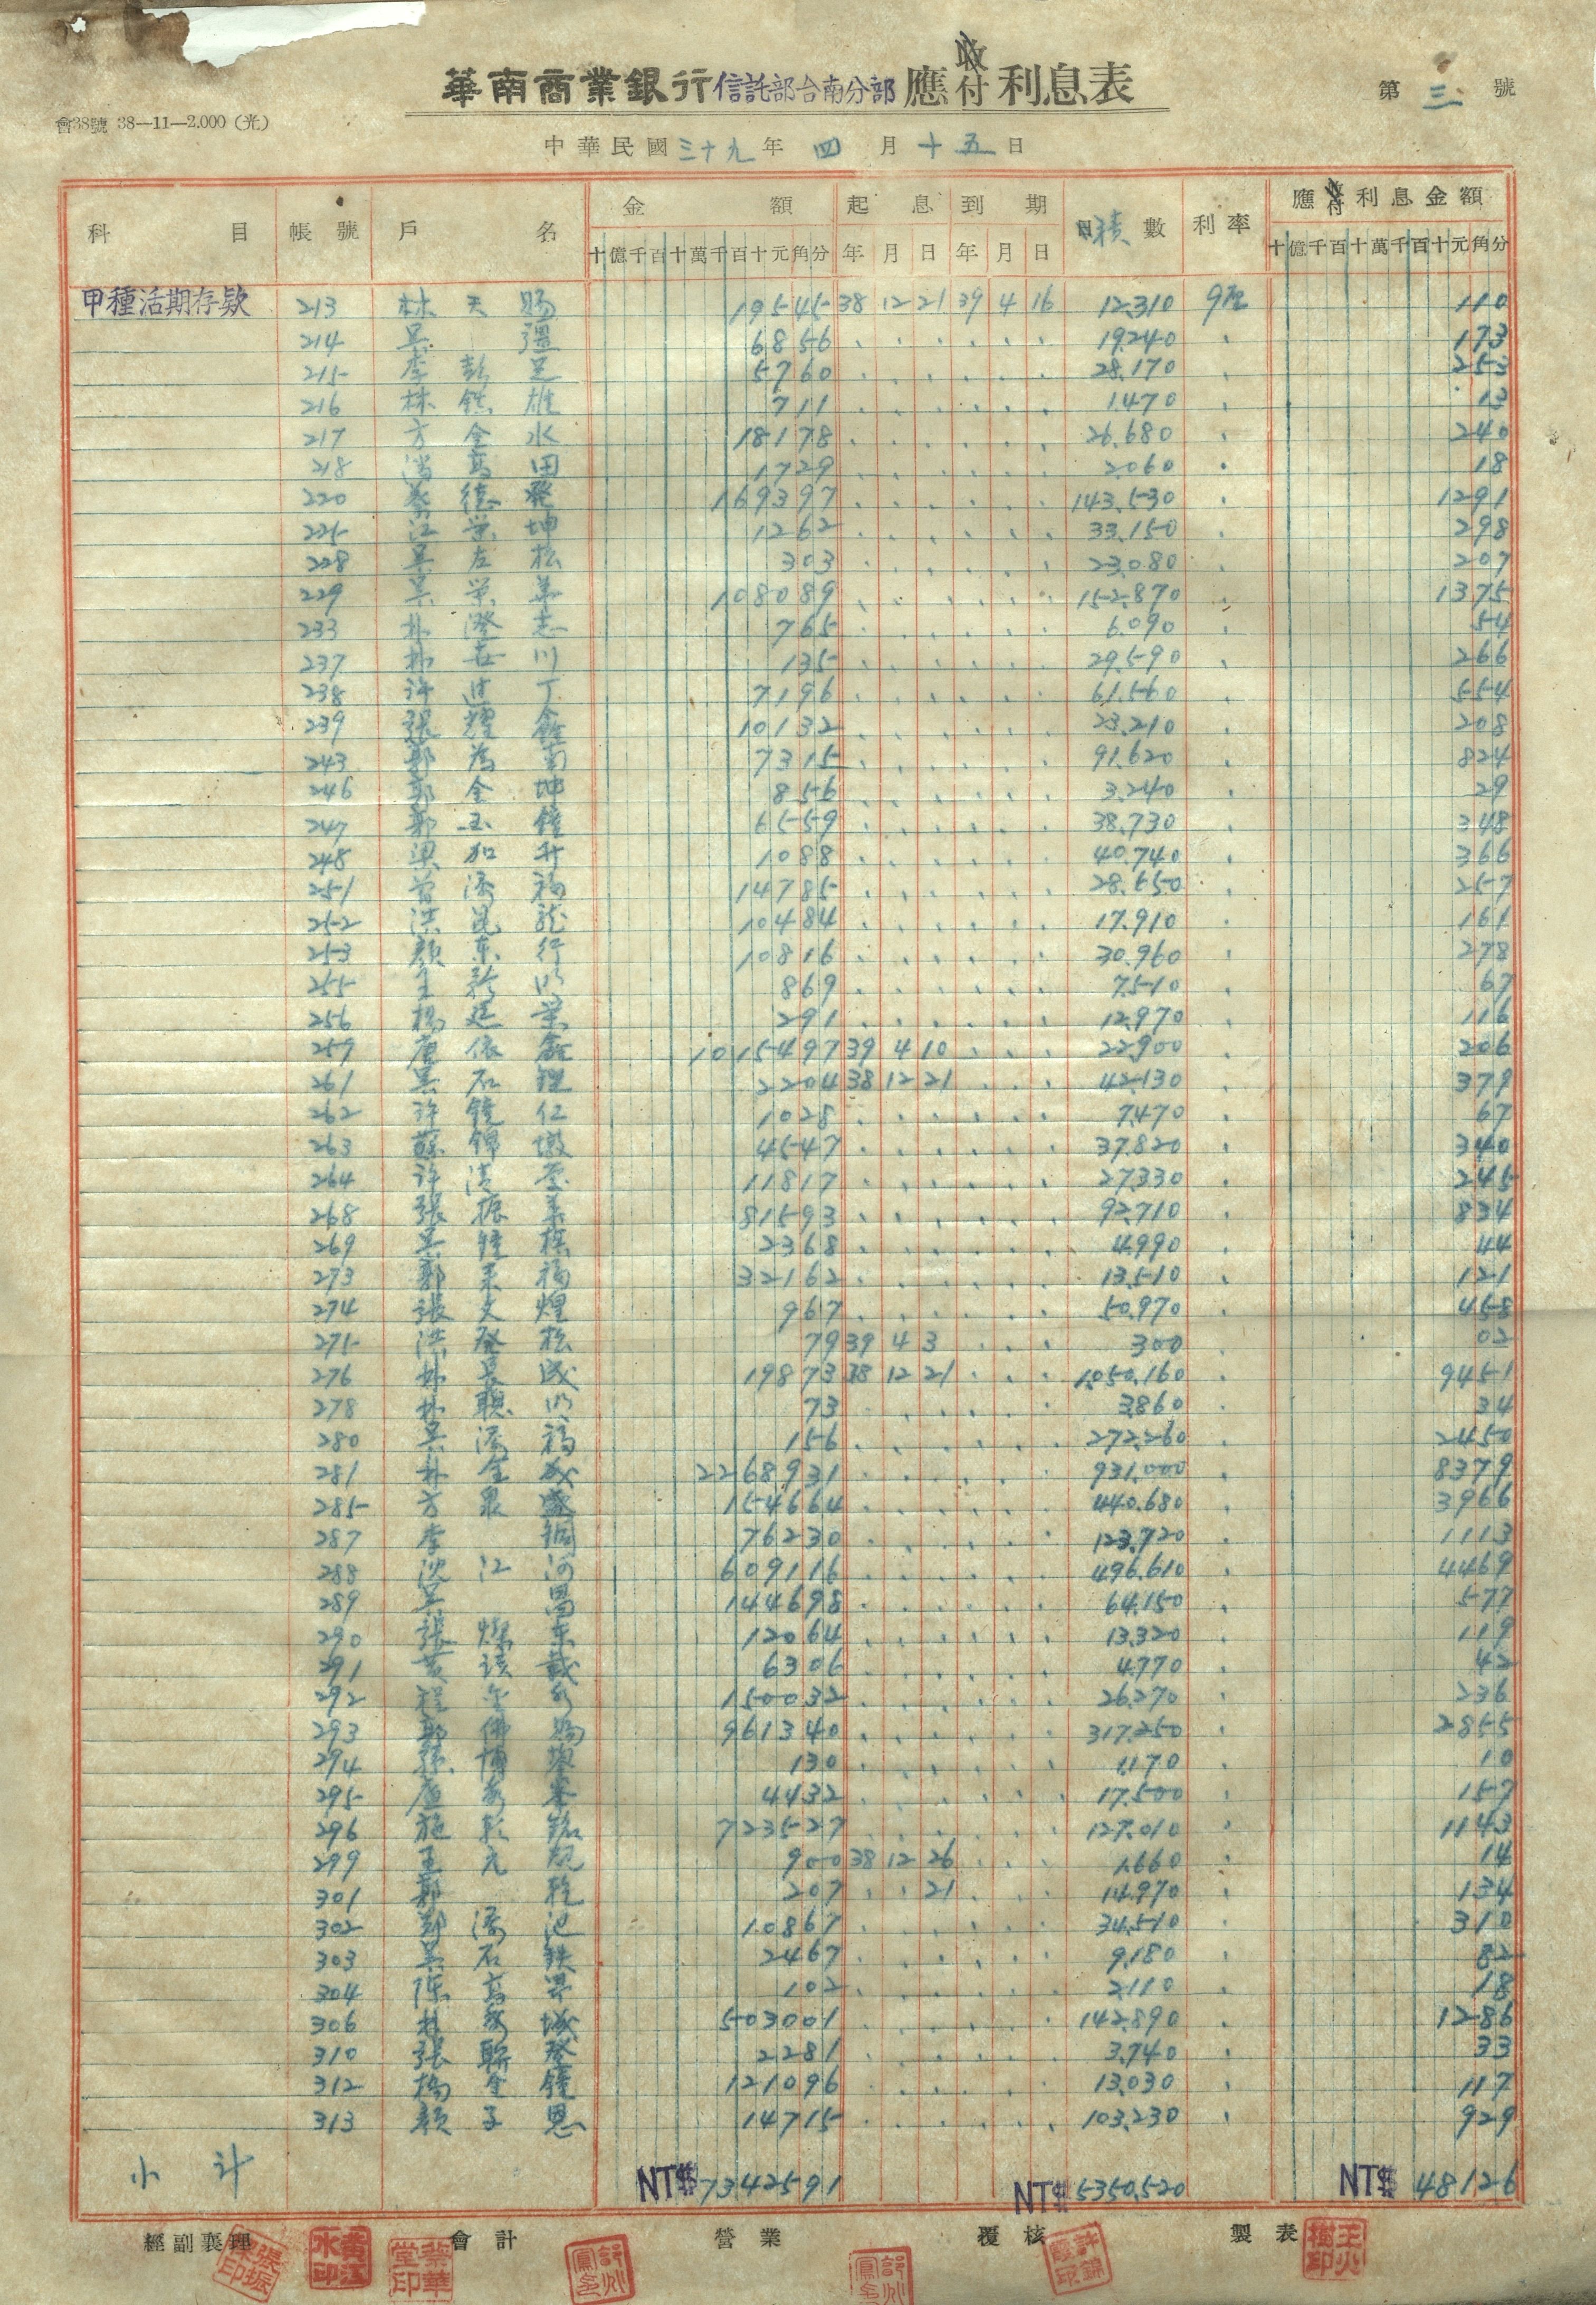 華南商業銀行信託部台南分部應收付利息表
第三號
會38號 38—11—2.000(光)
中華民國三十九年四月十五日
科目 帳號 戶名 金額 起息 到期 積數 利率 應收付利息金額
十億千百十萬千百十元角分 年月日 年月日 十億千百十萬千百十元角分
甲種活期存款 213 林天賜 19545 38 12 21 39 4 16 12.310 9厘 110
214 吳 澤 6856 19.240 173
215 李彭足 5760 28.170 253
216 林鎮雄 711 1.470 13
217 方金水 18178 26.680 240
218 田 1729 2.060 18
220 蔡德發 169397 143.530 1291
225 江榮坤 1262 33.150 298
228 吳左松 303 23.080 207
229 吳榮 108089 152.870 1375
233 林澄志 765 6.090 54
237 林在川 135 29.590 266
238 許 丁 7196 61.560 554
239 張耀 10132 23.210 208
243 郭為南 7315 91.620 824
246 郭金坤 856 3.240 29
247 郭玉鐘 6559 38.730 348
248 梁加升 1088 40.740 366
251 曾添福 14785 28.650 257
252 洪昆龍 10484 17.910 161
253 顏東行 10816 30.960 278
255 王 明 869 7.510 67
256 楊廷榮 291 12.970 116
259 唐依鑫 1015497 39 4 10 22.900 206
261 吳石 2204 38 12 21 42.130 379
262 許鏡仁 1028 7.470 67
263 蘇錦墩 4547 37.820 340
264 許清 11817 27.330 245
268 張振 81593 92.710 834
269 吳鐘棋 2368 4.990 44
273 郭來福 32162 13.510 121
274 張文煌 967 50.970 458
275 洪發松 79 39 4 3 300 02
276 林長成 19873 38 12 21 1.050.160 9451
278 林聰明 73 3.860 34
280 吳添福 156 272.260 2450
281 林金成 2268931 931.000 8379
285 方泉盛 154664 440.680 3966
287 李 銅 76230 123.720 1113
288 沈江河 609116 496.610 4469
289 吳 144698 64.150 577
290 張燦東 12064 13.320 119
291 黃 載 6306 4.770 42
292 程 150032 26.270 236
293 郭佛賜 961340 317.250 2855
294 孫博 130 1.170 10
295 盧 峯 4432 17.500 157
296 施 銘 723527 127.010 1143
299 王元 900 38 12 26 1.660 14
301 郭 乾 207 21 14.970 134
302 鄭添池 10867 34.510 310
303 吳石鉄 2467 9.180 82
304 陳 102 2.110 18
306 林 城 503001 142.890 1286
310 張聯發 2281 3.740 33
312 楊金鐘 121096 13.030 117
313 顏子恩 14715 103.230 929
小計 NT$7342591 NT$5350.520 NT$48126
經副襄理 會計 營業 覆核 製表